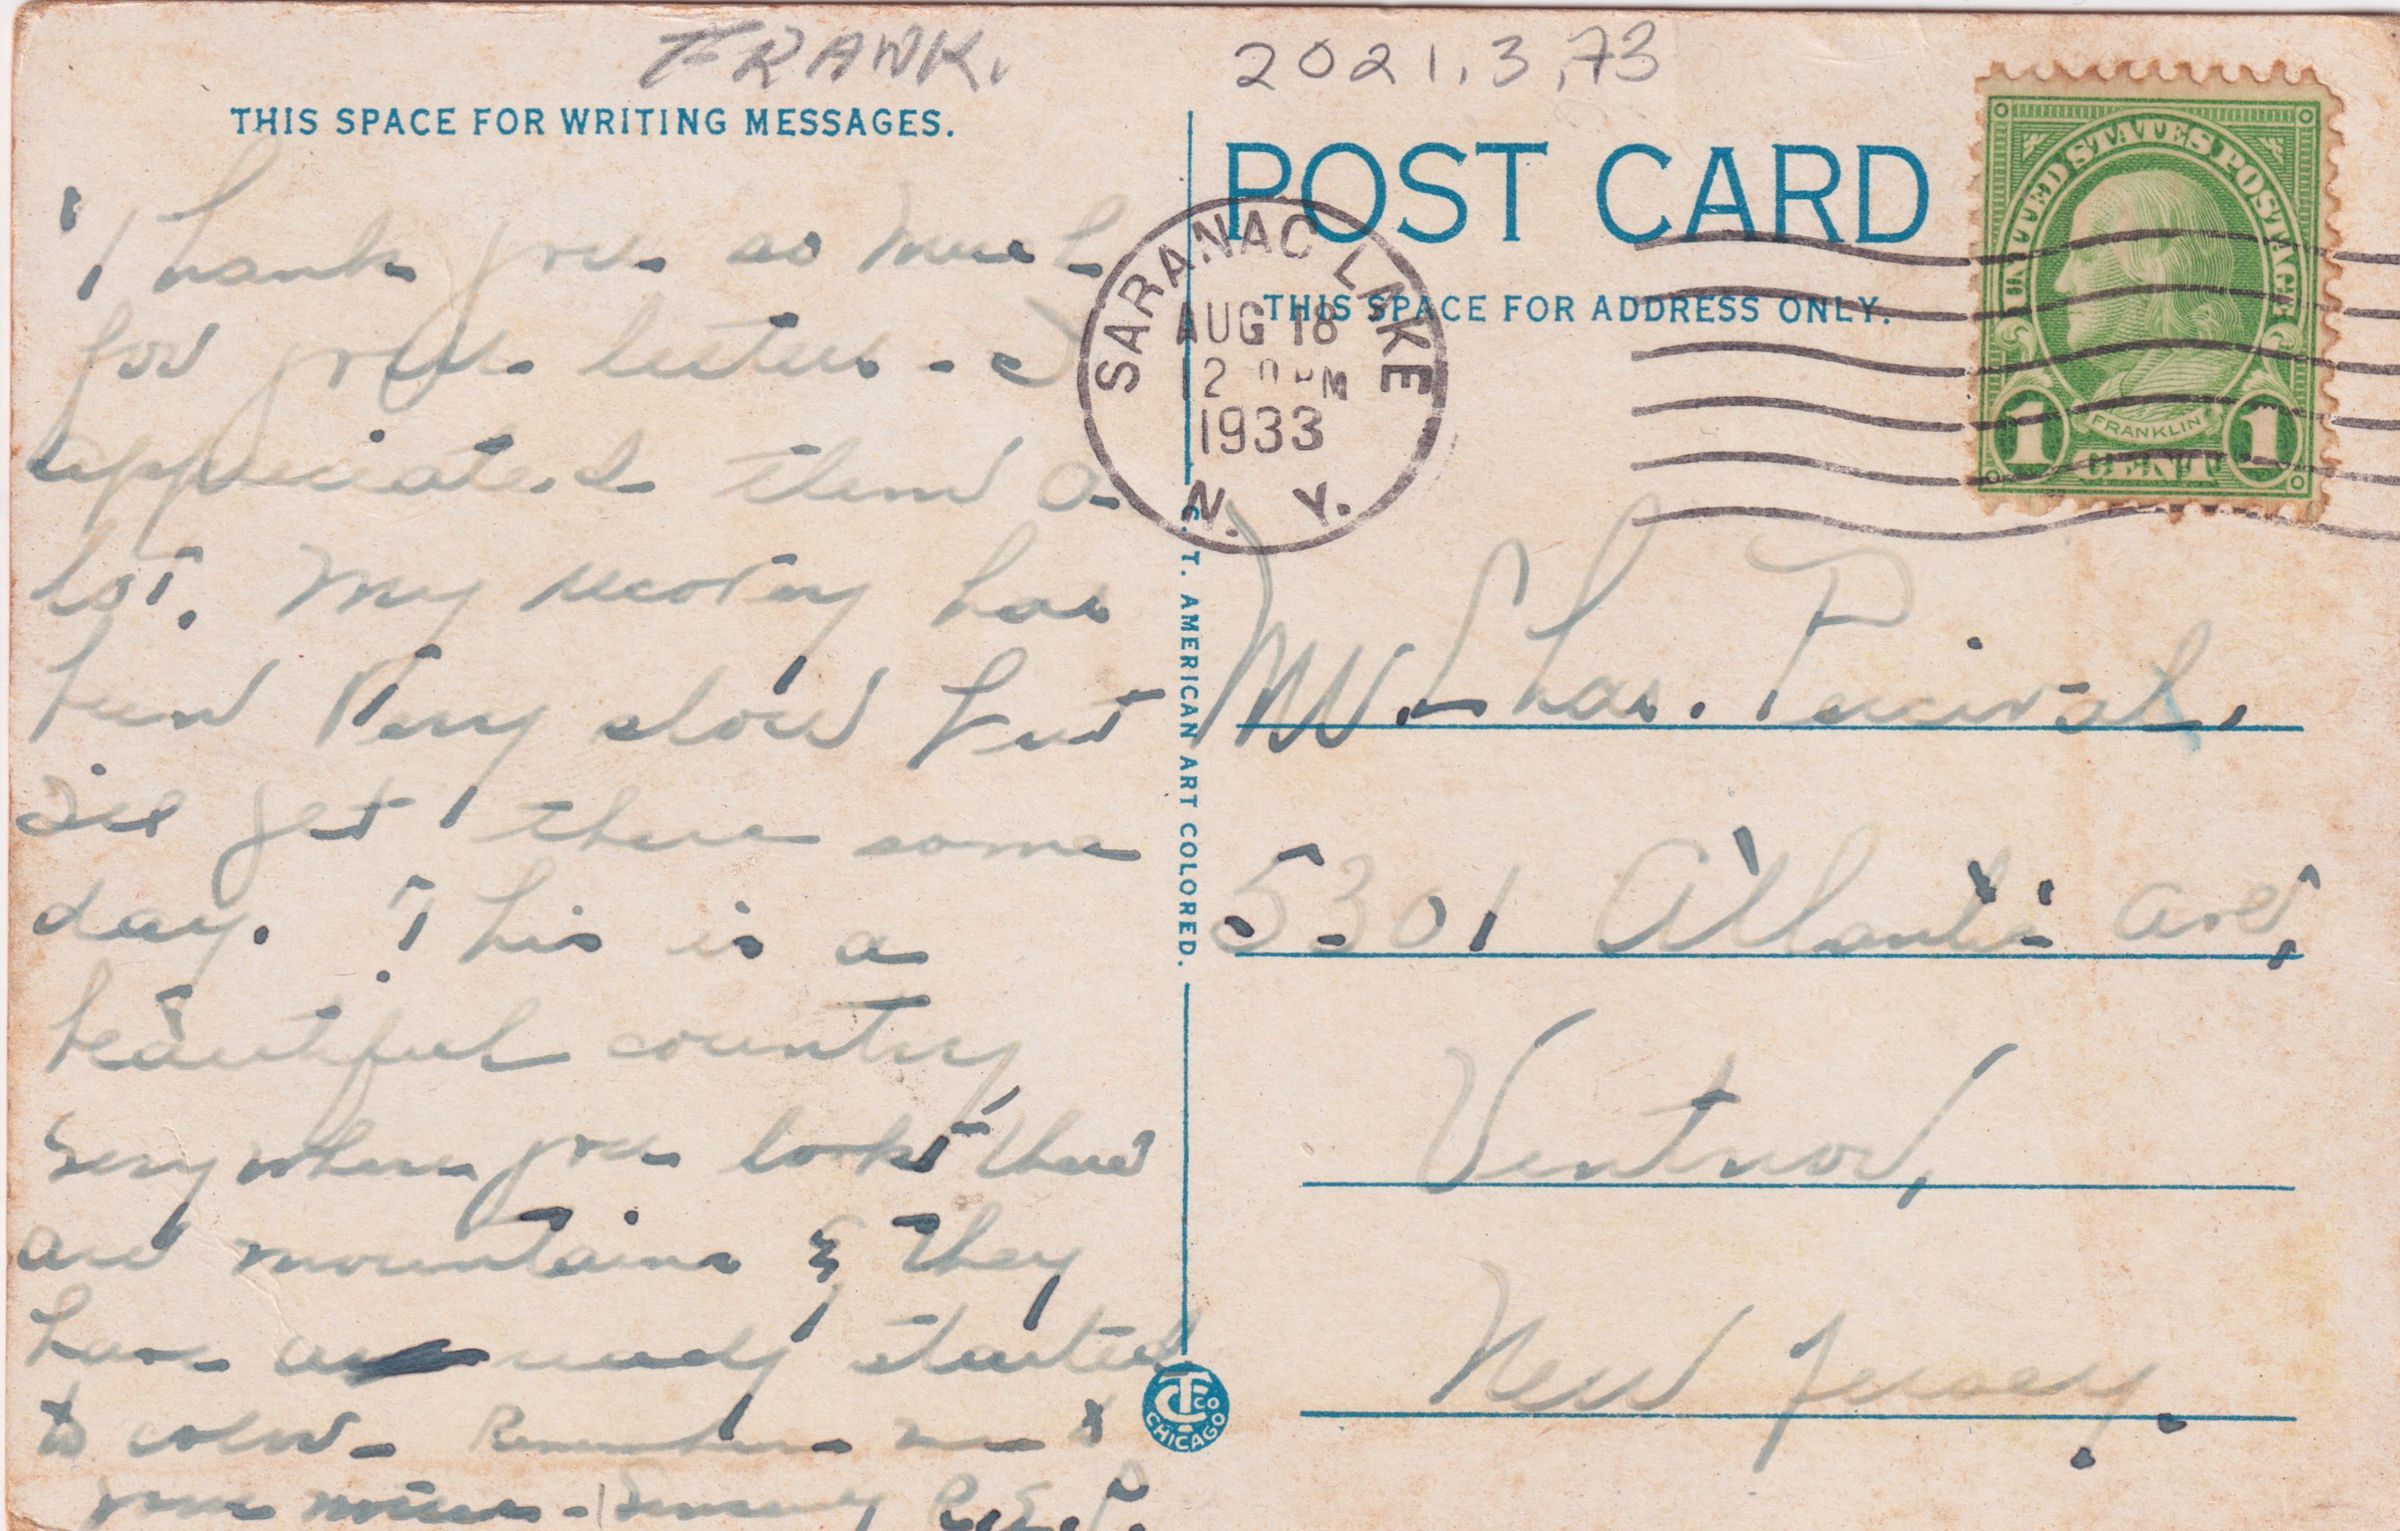 FRANK.
2021.3.73
THIS SPACE FOR WRITING MESSAGES.
POST CARD
THIS SPACE FOR ADDRESS ONLY.
UNITED STATES POSTAGE
FRANKLIN
1 CENT 1
SARANAC LAKE
AUG 18
2 PM
1933
N. Y.
Thank you so much
for your letters - I
appreciated them a
lot. My recovery has
been very slow but
I'll get there some
day. This is a
beautiful country
everywhere you look there
are mountains & they
have already started
to color - Remember me to
your mother - Sincerely R.E.P.
C. T. AMERICAN ART COLORED.
CT CO CHICAGO
Mr. Chas. Percival,
5301 Atlantic Ave,
Ventnor,
New Jersey.